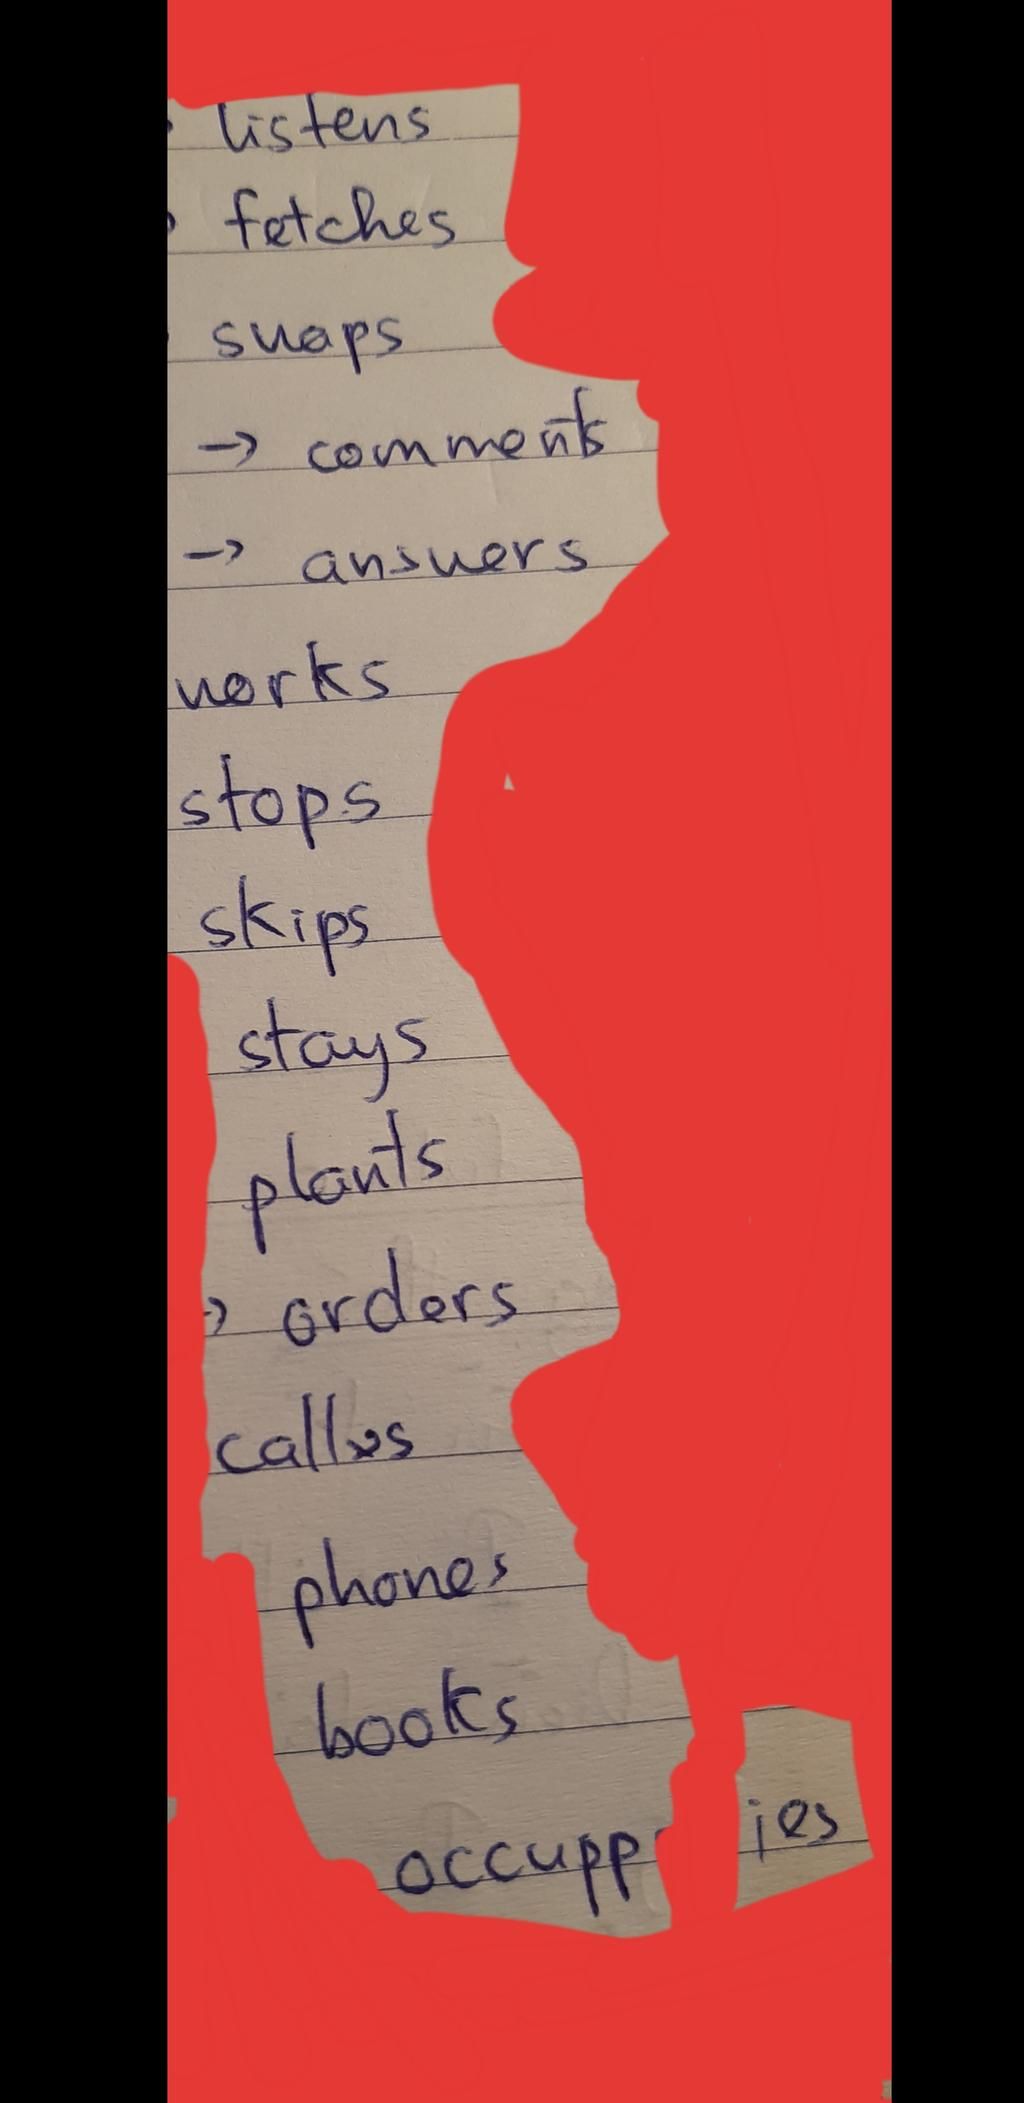 listens
fetches
snaps
→ comments
→ answers
works
stops
skips
stays
plants
→ orders
calls
phones
books
occuppies